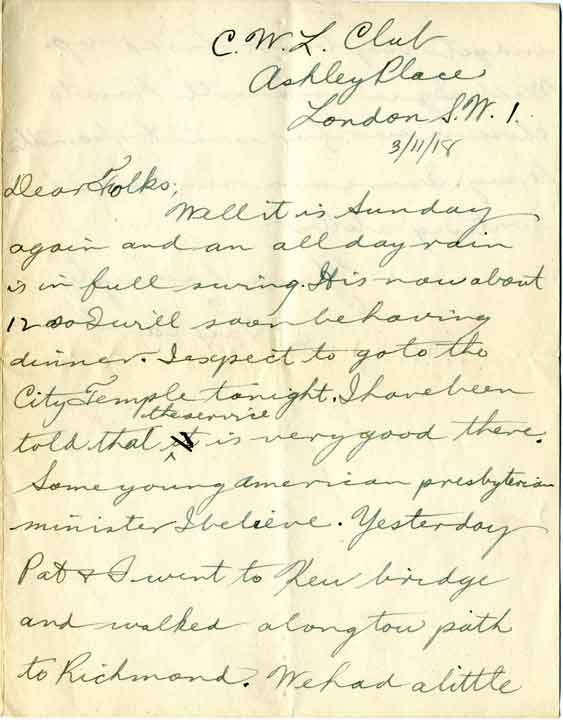 C. W. L. Club
Ashley Place
London S.W. 1.
3/11/18
Dear Folks,
Well it is Sunday
again and an all day rain
is in full swing. It is now about
12 so I will soon be having
dinner. I expect to go to the
City Temple tonight. I have been
the service
told that it is very good there.
Some young American presbyterian
minister I believe. Yesterday
Pat & I went to Kew bridge
and walked along tow path
to Richmond. We had a little